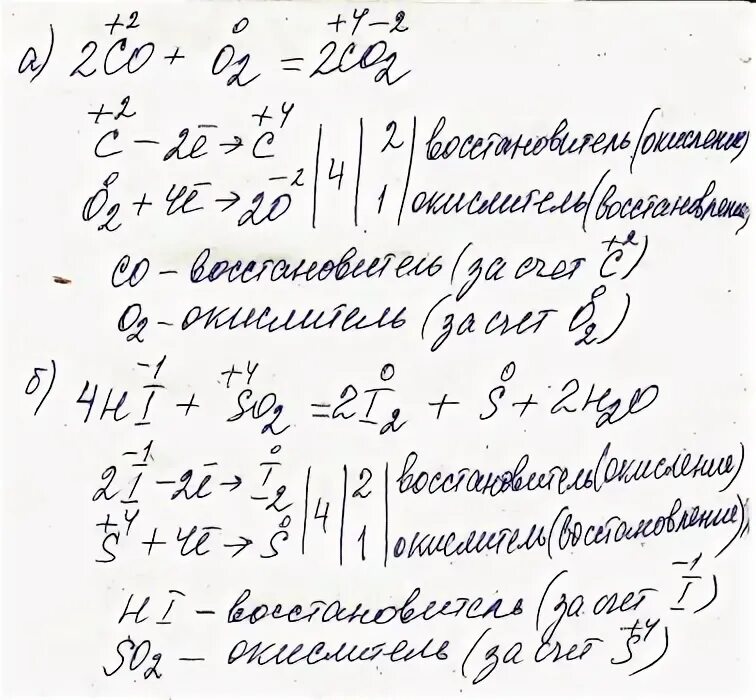 +2 0 +4 -2
а) 2CO + O2 = 2CO2
+2 +4
C - 2ē → C | 4 | 2 | восстановитель (окисление)
0 -2
O2 + 4ē → 2O | 1 | окислитель (восстановление)
+2
CO - восстановитель (за счет C)
0
O2 - окислитель (за счет O2)
-1 +4 0 0
б) 4HI + SO2 = 2I2 + S + 2H2O
-1 0
2I - 2ē → I2 | 4 | 2 | восстановитель (окисление)
+4 0
S + 4ē → S | 1 | окислитель (восстановление)
-1
HI - восстановитель (за счет I)
+4
SO2 - окислитель (за счет S)